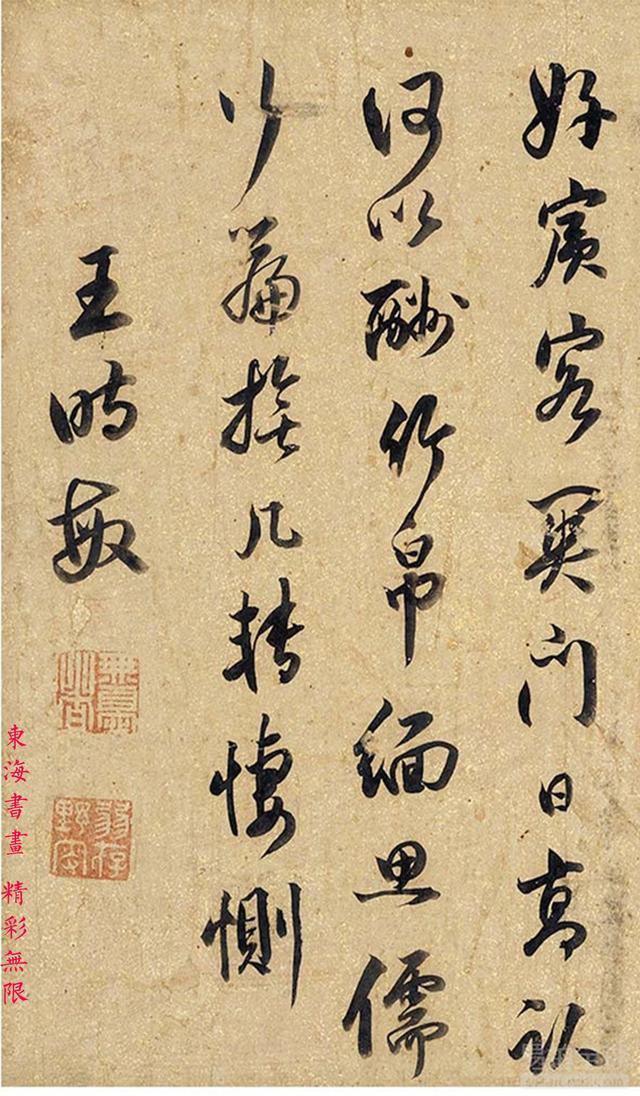 好賓客門日高臥
何以酬竹帛緬思儒
行篇撫几轉悽惻
王時敏
東海書畫 精彩無限